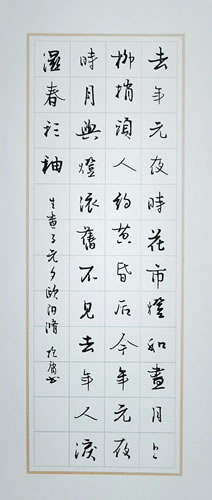 去年元夜時花市燈如晝月上
柳梢頭人約黃昏后今年元夜
時月與燈依舊不見去年人淚
濕春衫袖 生查子元夕歐陽脩